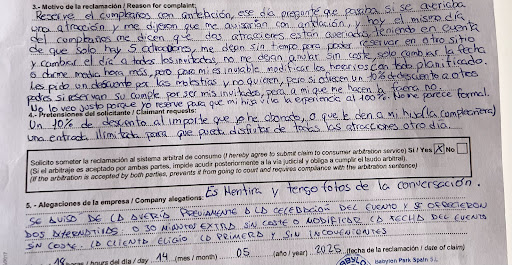 3.- Motivo de la reclamación / Reason for complaint:
Reservé el cumpleaños con antelación, ese día pregunté que pasaba si se averiaba
una atracción y me dijeron que me avisarían con antelación, y hoy el mismo día
del cumpleaños me dicen que dos atracciones están averiadas, teniendo en cuenta
de que solo hay 5 atracciones, me dean sin tiempo para poder reservar en otro sitio
y cambiar el día a todos los invitados, no me dejan anular sin coste, solo cambiar la fecha
o darme media hora más, pero para mi es inviable modificar las horas con todo planificado.
Les pido un descuento por las molestias y no quieren, pero si ofrecen un 10% de descuento a otros
padres si reservan su cumple por ser mis invitados, pero a mi que me hacen la faena no.
No lo veo justo porque yo reservé para que mi hija viva la experiencia al 100%. No me parece formal.
4.- Pretensiones del solicitante / Claimant requests:
Un 10% de descuento al importe que ya he abonado, o que le den a mi hija (la cumpleañera)
una entrada ilimitada para que pueda disfrutar de todas las atracciones otro día.
Solicito someter la reclamación al sistema arbitral de consumo (I hereby agree to submit claim to consumer arbitration service) Si / Yes X No
(Si el arbitraje es aceptado por ambas partes, impide acudir posteriormente a la vía judicial y obliga a cumplir el laudo arbitral).
(If the arbitration is accepted by both parties, prevents it from going to court and requires compliance with the arbitration sentence)
Es Mentira y tengo fotos de la conversación.
5. - Alegaciones de la empresa / Company allegations:
SE AVISO DE LA AVERIA PREVIAMENTE A LA CELEBRACION DEL EVENTO Y SE OFRECIERON
DOS ALTERNATIVAS O 30 MINUTOS EXTRA SIN COSTE O MODIFICAR LA FECHA DEL EVENTO
SIN COSTE. LA CLIENTA ELIGIO LA PRIMERA Y SIN INCONVENIENTES
18 horas / hours del día / day 14 (mes / month) 05 (año / year) 2025 (fecha de la reclamación / date of claim)
Babylon Park Spain S.L.